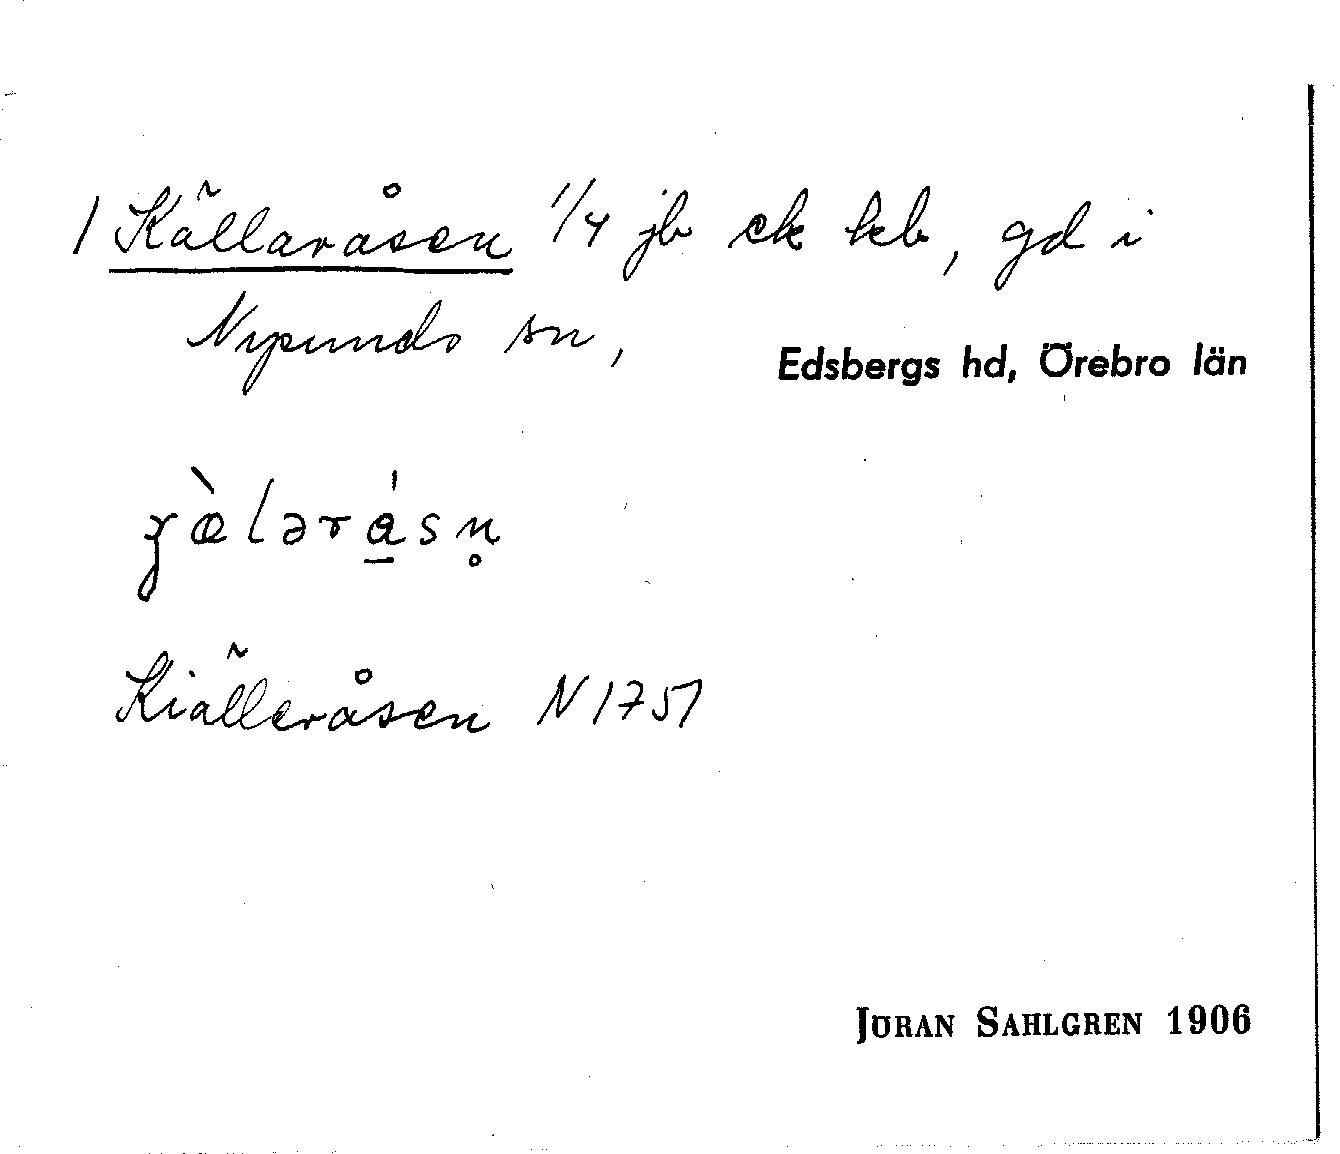 1 Källaråsen 1/4 jb ck kb, gd i
Nysunds sn,
Edsbergs hd, Örebro län
Kiälleråsen N 1751
JÖRAN SAHLGREN 1906